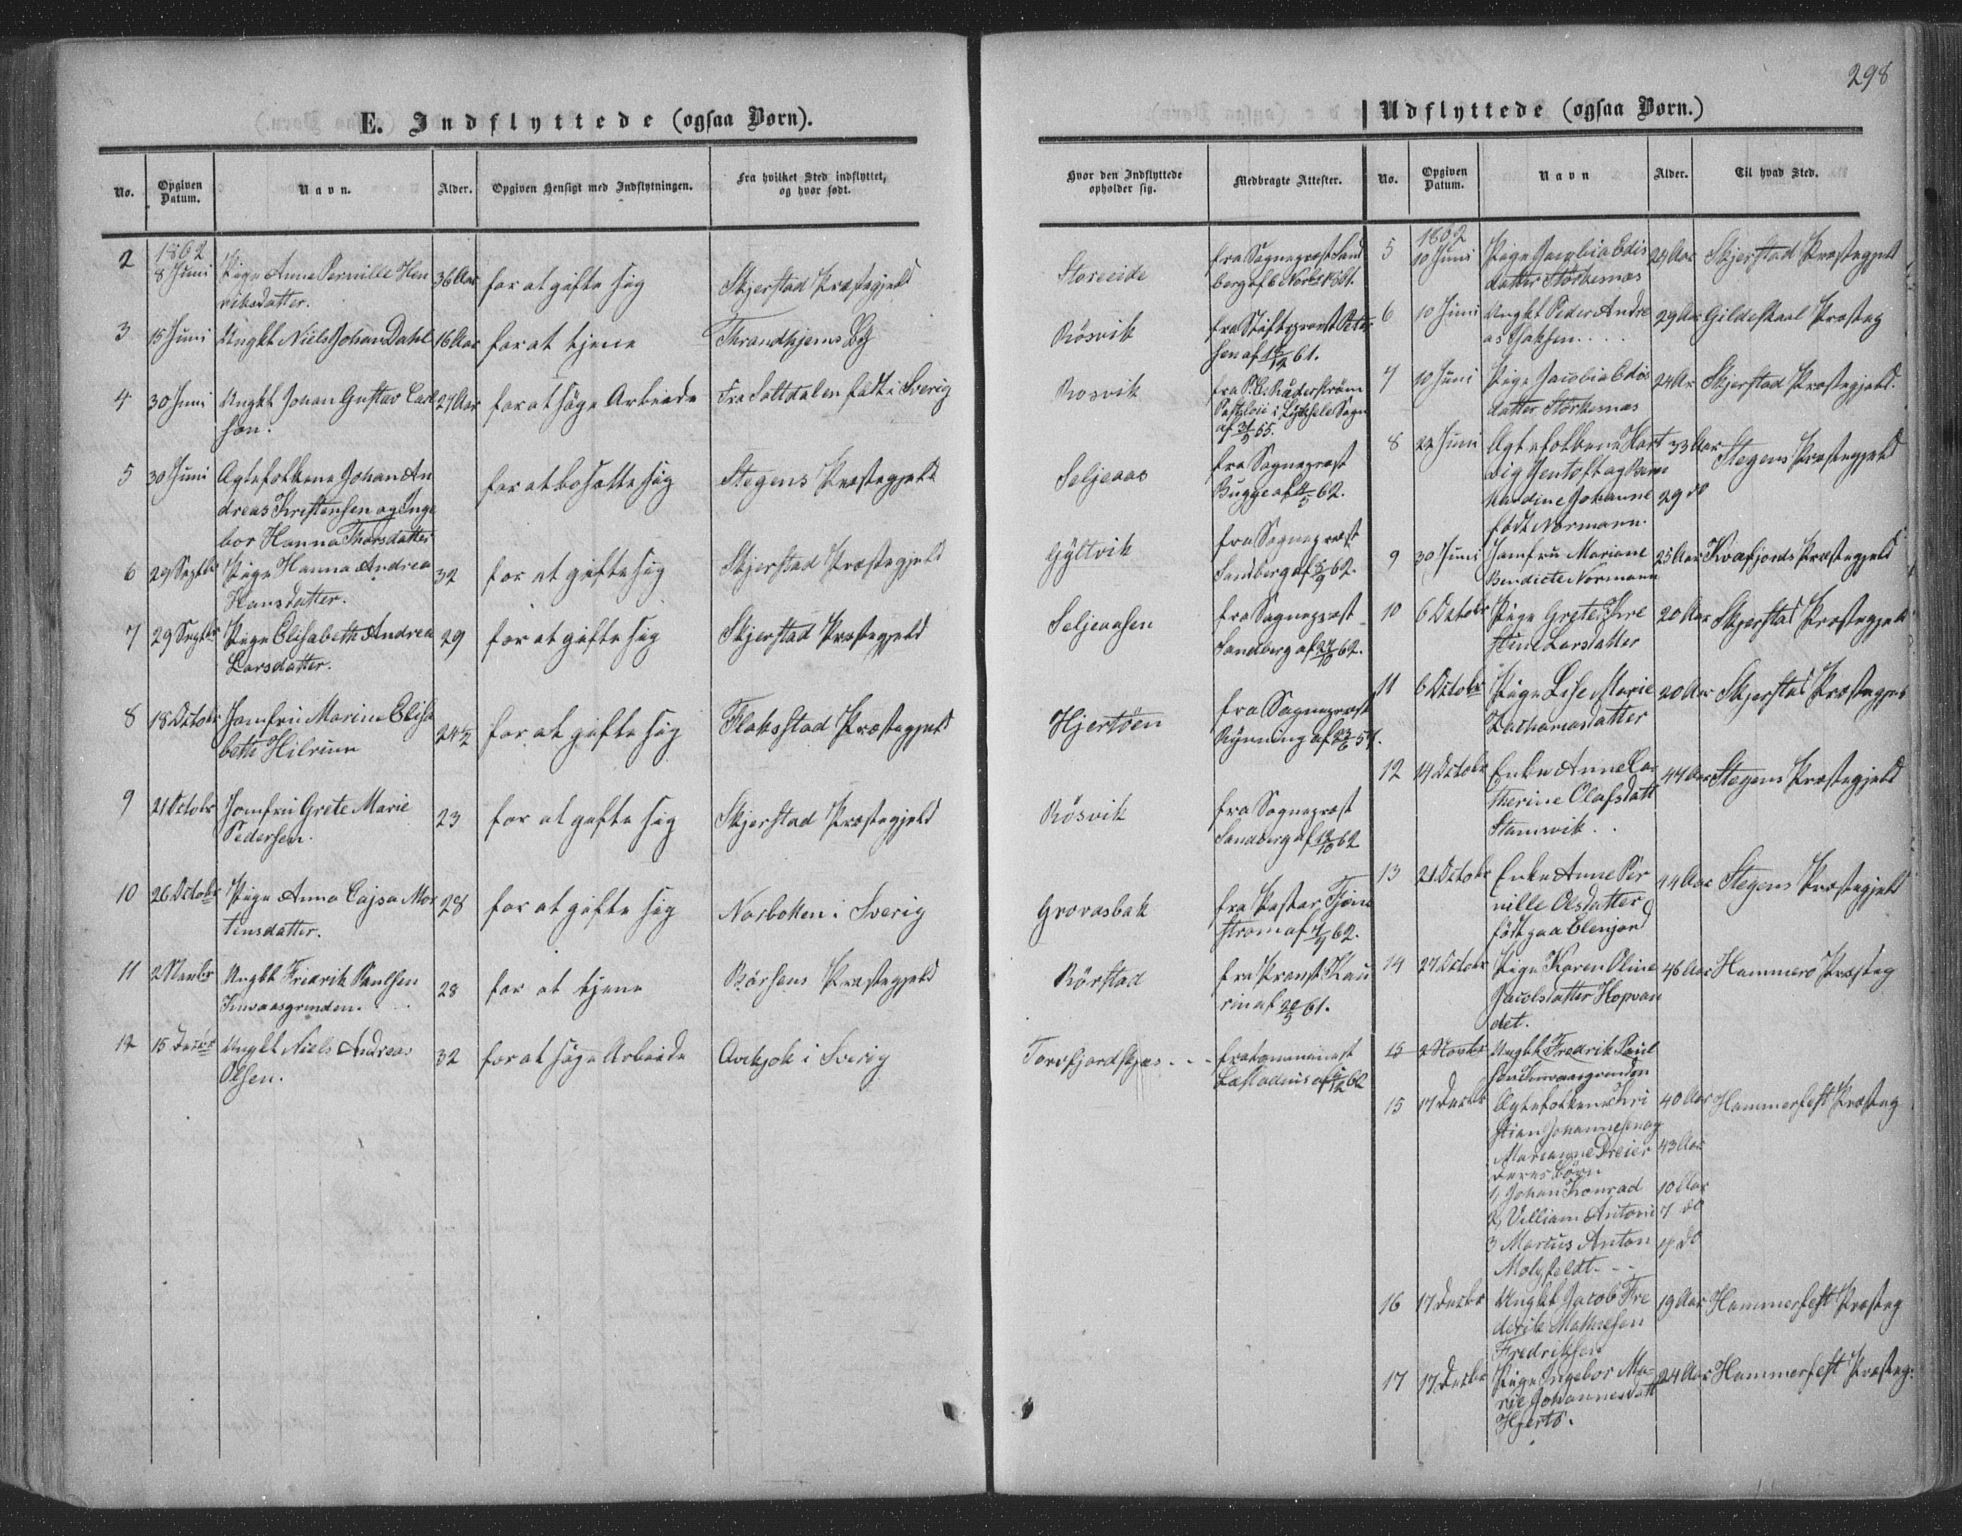 298
E. Indflyttede (ogsaa Børn).
No.
Opgiven Datum.
Navn.
Alder.
Opgiven Hensigt med Indflytningen.
Fra hvilket Sted indflyttet, og hvor født.
Hvor den Indflyttede opholder sig.
Medbragte Attester.
2
1862
8 Juni
Pige Anne Pernille Hen
riksdatter.
36 Aar
for at gifte sig
Skjerstad Præstegjeld
Storeide
fra Sognepræst Sand
berg af 6
3
15 Juni
Ungkl Niels Johan Dahl
16 Aar
for at tjene
Throndhjems By
Rösvik
fra Stiftsprovst
sen af 61.
4
30 Juni
Ungkl Johan Gustav Carl
son.
27 Aar
for at söge Arbeide
Fra Saltdalen født i Sverig
Rosvik
i Lyksele Sogn
af 55.
5
30 Juni
Ægtefolkene Johan An
dreas Kristensen og Inge
bor Hanna Thorsdatter
for at bosætte sig
Stegens Præstegjeld
Seljeaas
fra Sognepræst
Bugge af 62.
6
29 Septbr
Pige Hanna Andrea
Hansdatter.
32
for at gifte sig
Skjerstad Præstegjeld
Gyltvik
fra Sognepræst
Sandberg af 62.
7
29 Septbr
Pige Elisabeth Andrea
Larsdatter.
29
for at gifte sig
Skjerstad Præstegjeld
Seljeaasen
fra Sognepræst
Sandberg af 62.
8
18 Octobr
Jomfru Marine Elisa
beth Hilrunn
24½
for at gifte sig
Flakstad Præstegjeld
Hjertöen
fra Sognepræst
Rynning af 23/6 57.
9
21 Octobr
Jomfru Grete Marie
Pedersen.
23
for at gifte sig
Skjerstad Præstegjeld
Rösvik
fra Sognepræst
Sandberg af 62
10
26 Octobr
Pige Anna Cajsa Mor
tensdatter.
28
for at gifte sig
Norbotten i Sverig
Grovasbak
fra Pastor
ström af 62.
11
2 Novbr
Ungkl Fredrik Paulsen
Kinvaasgrunden.
28
for at tjene
Börsens Præstegjeld
Rörstad
fra Provst Kau
rin af 20/5 61.
12
15 Decbr
Ungkl Niels Andreas
Olsen.
32
for at söge Arbeide
i Sverig
Torrfjordskjæs
fra
Læstadius af 62
Udflyttede (ogsaa Børn.)
No.
Opgiven Datum.
Navn
Alder.
Til hvad Sted.
5
1862
10 Juni
Pige Jacobia Edis
datter Storkernæs
24 Aar
Skjerstad Præstegjeld
6
10 Juni
Ungkl Peder Andre
as Jaksen
29 Aar
Gildeskaal Præsteg
7
10 Juni
Pige Jacobia Edis
datter Storkernæs
24 Ar
Skjerstad Præstegjeld.
8
22 Juni
Ægtefolkene Hart
vig Jentoft og Bern
hardine Johanne
født Normann.
33 Aar
29 do
Stegens Præstegjeld
9
30 Juni
Jomfru Mariane
Bendicte Normann
25 Aar
Kvæfjords Præstegjeld
10
6 Octobr
Pige Grete Kri
stine Larsdatter
20 Aar
Skjerstad Præstegjeld
11
6 Octobr
Pige Lise Marie
Zachariasdatter
20 Aar
Skjerstad Præstegjeld
12
14 Octobr
Enke Anne Ca
therine Olafsdatt
Stamsvik
44 Aar
Stegens Præstegjeld
13
21 Octobr
Enke Anne Per
nille Olsdatter
født paa Elenjord
44 Aar
Stegens Præstegjeld
14
27 Octobr
Pige Karen Oline
Jacobsdatter Hopvan
det.
46 Aar
Hammerö Præsteg
15
2 Novbr
Ungkl Fredrik Paul
sen Kinvaasgrunden
15
17 Decbr
Ægtefolkene Kri
stian Johannesen og
Marianne Dreier
deres Börn
1, Johan Konrad
2, Villiam Antoni
3 Marcus Anton
Molzfeldt.
40 Aar
43 Aar
10 Aar
7 do
4 do
Hammerfest Præsteg
16
17 Decbr
Ungkl Jacob Fre
derik Mathiesen
Fredriksen
19 Aar
Hammerfest Præsteg
17
17 Decbr
Pige Ingebor Ma-
rie Johannesdatt
Hjertö.
24 Aar
Hammerfest Præsteg: